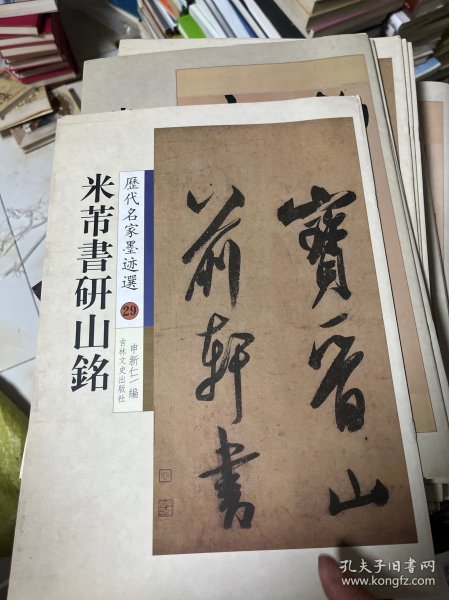 米芾書研山銘
歷代名家墨迹選
29
申新仁/編
吉林文史出版社
寶晉山
前軒書
孔夫子旧书网
www.kongfz.com